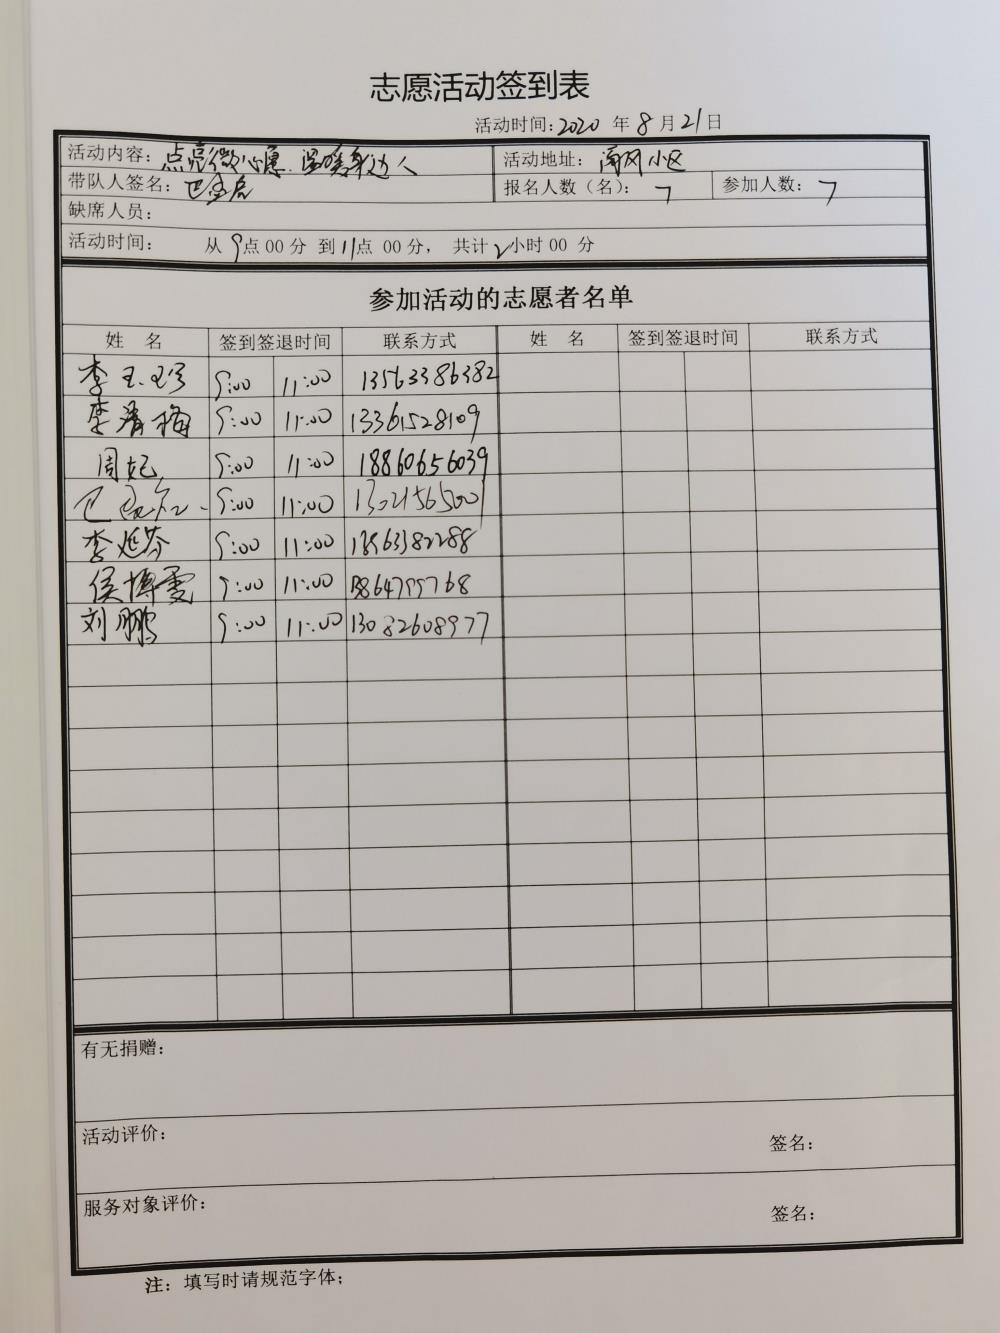 志愿活动签到表
活动时间:2020 年 8 月 21 日
活动内容：点亮微心愿.温暖身边人 活动地址：南风小区
带队人签名： 报名人数（名）：7 参加人数：7
缺席人员：
活动时间： 从 9点 00 分 到 11点 00 分， 共计 2小时 00 分
参加活动的志愿者名单
姓 名 签到签退时间 联系方式 姓 名 签到签退时间 联系方式
李玉珍 9:00 11:00 13563386382
李清梅 9:00 11:00 13361528109
周妃 9:00 11:00 18860656039
9:00 11:00 13021565001
李延芬 9:00 11:00 13963382288
侯博雯 9:00 11:00
刘鹏 9:00 11:00 13082608977
有无捐赠：
活动评价：
签名：
服务对象评价：
签名：
注：填写时请规范字体；